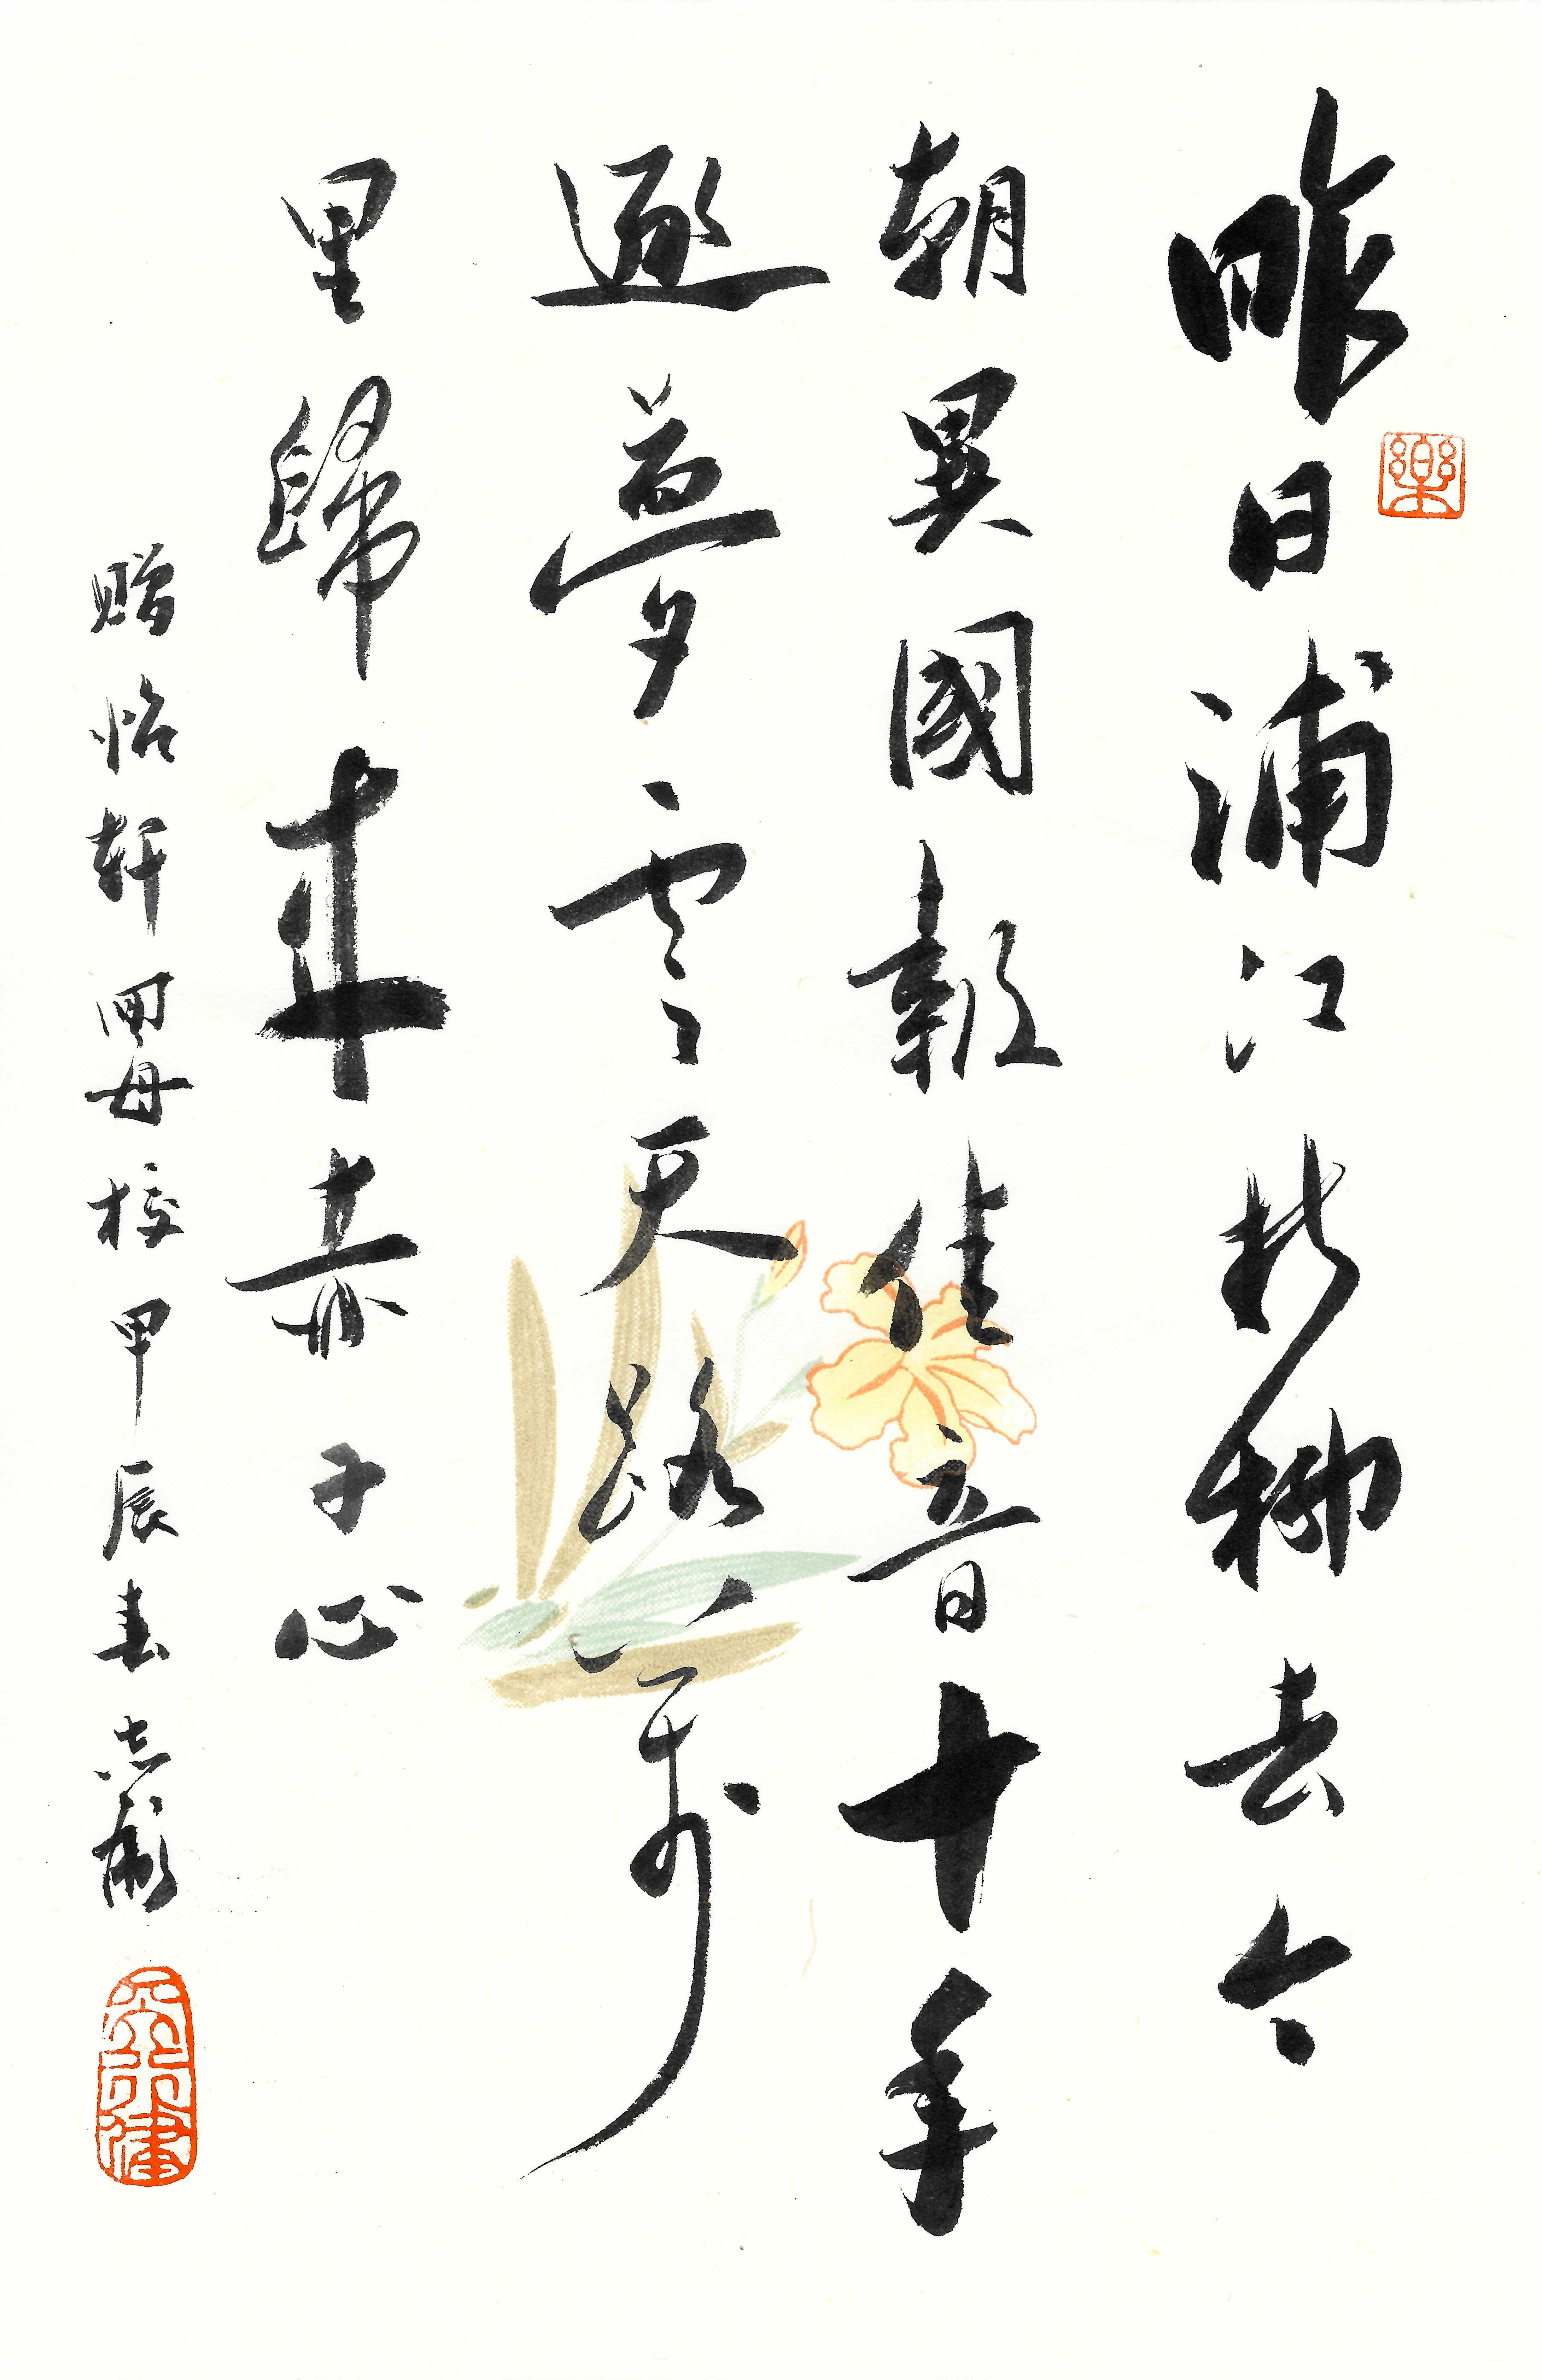 昨日浦江折柳去今
朝異國報佳音十年
逐夢雲天路萬
里歸來赤子心
贈怡軒回母校甲辰春志
樂